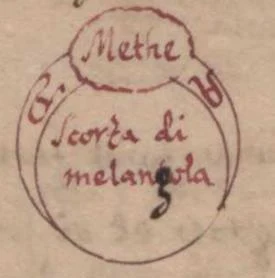 Methe
G. R
Scorza di
melangola